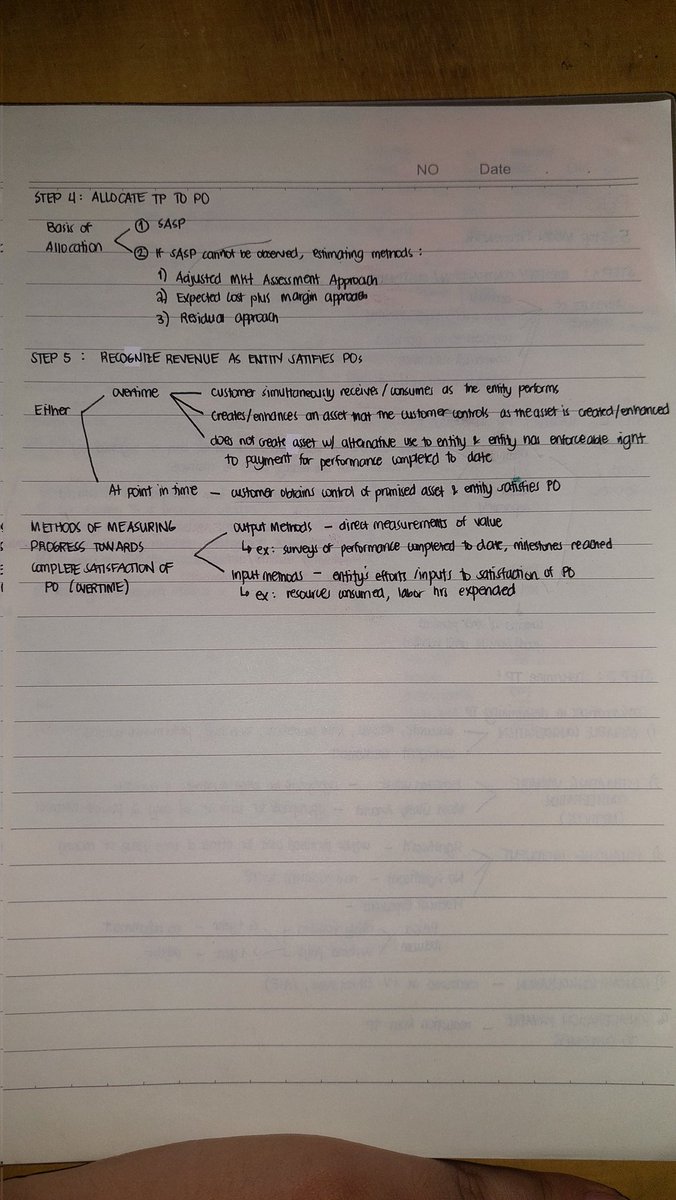 NO Date . .
STEP 4 : ALLOCATE TP TO PO
Basis of Allocation
① SASP
② If SASP cannot be observed, estimating methods :
1) Adjusted MKt Assessment Approach
2) Expected Cost plus margin approach
3) Residual approach
STEP 5 : RECOGNIZE REVENUE AS ENTITY SATIFIES POs
Either
overtime
customer simultaneously receives/consumes as the entity performs
creates/enhances an asset that the customer controls as the asset is created/enhanced
does not create asset w/ alternative use to entity & entity has enforceable right
to payment for performance completed to date
At point in time – customer obtains control of promised asset & entity satisfies PO
METHODS OF MEASURING
PROGRESS TOWARDS
COMPLETE SATISFACTION OF
PO (OVERTIME)
output methods – direct measurements of value
↳ ex: surveys of performance completed to date, milestones reached
Input methods – entity's efforts/inputs to satisfaction of PO
↳ ex: resources consumed, labor hrs expended